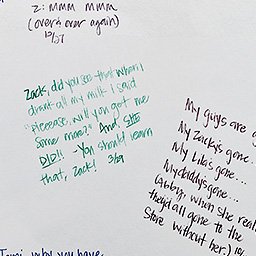 Z: MMM MMM
(over & over again)
12/27
Zack, did you see that when I
drank all my milk I said
"pleeease, will you get me
some more?" And SHE
DID!! - You should learn
that, Zack! 3/29
My guys are
My Zacky's gone...
My Lila's gone...
My daddy's gone...
(Abby, when she real
they'd all gone to the
store without her.)
why you have